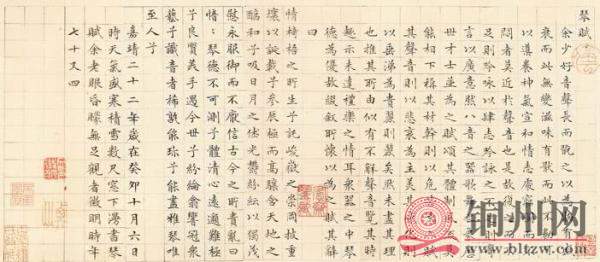 琴賦
余少好音聲長而翫之以為物有盛
衰而此無變滋味有猒而此不勌可
以導養神氣宣和情志處窮獨而不
悶者莫近於音聲也是故復之而不
足則吟詠以肆志吟詠之不足則寄
言以廣意然八音之器歌舞之
世才士並為之賦頌其體制風
相稱其材幹則以危苦
其聲音則以悲哀為主美
以垂涕為貴麗則麗矣然未盡其理
也推其所由似有不解聲音覽其
趣亦未達禮樂之情也衆器之中琴
德最優故綴敘所懷以為之賦其辭
曰
情椅梧之所生兮託峻嶽之崇岡披重
壤以誕載兮參辰極而高驤含天地之
醇和兮吸日月之休光鬱紛紜以獨茂
慰永服御而不厭信古今之所貴亂曰
愔愔琴德不可測兮體清心遠邈難極
兮良質美手遇今世兮紛綸翕響冠衆
藝兮識音者稀孰能珍兮能盡雅琴唯
至人兮
嘉靖二十二年歲在癸卯十月六日
時天氣盛寒積雪數尺窓下漫書琴
賦余老眼昏矇無足觀者徵明時年
七十又四
铜川网
www.bltzw.com